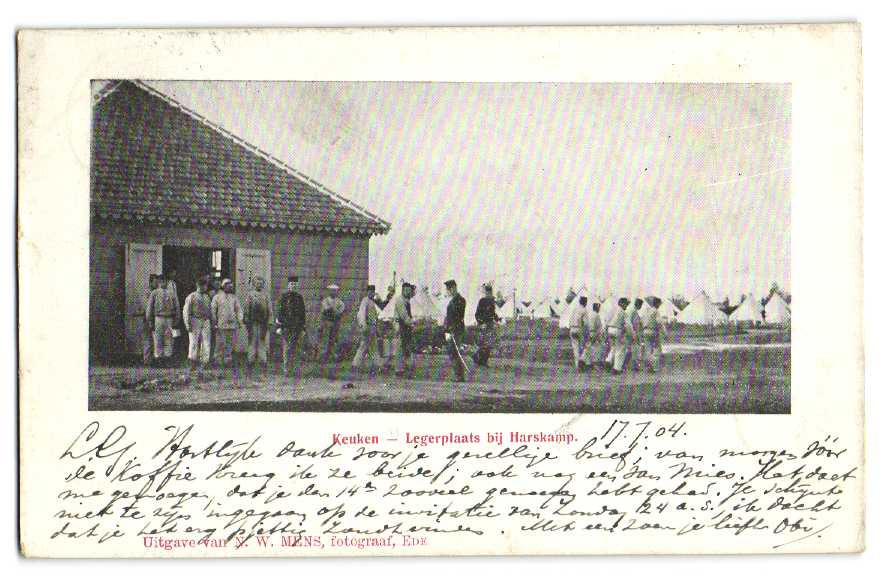 Keuken — Legerplaats bij Harskamp.
17.7.04.
L.G. Hartelijk dank voor je gezellige brief; van morgen vóór
de Koffie kreeg ik ze beide; ook nog een van Mies. Het doet
me genoegen, dat je den 14n zooveel genoegen hebt gehad. Je schijnt
niet te zijn ingegaan op de invitatie van Zondag 24 a.s., ik dacht
dat je het erg prettig zoudt vinden. Met een zoen je liefh.
Uitgave van N. W. MENS, fotograaf, EDE